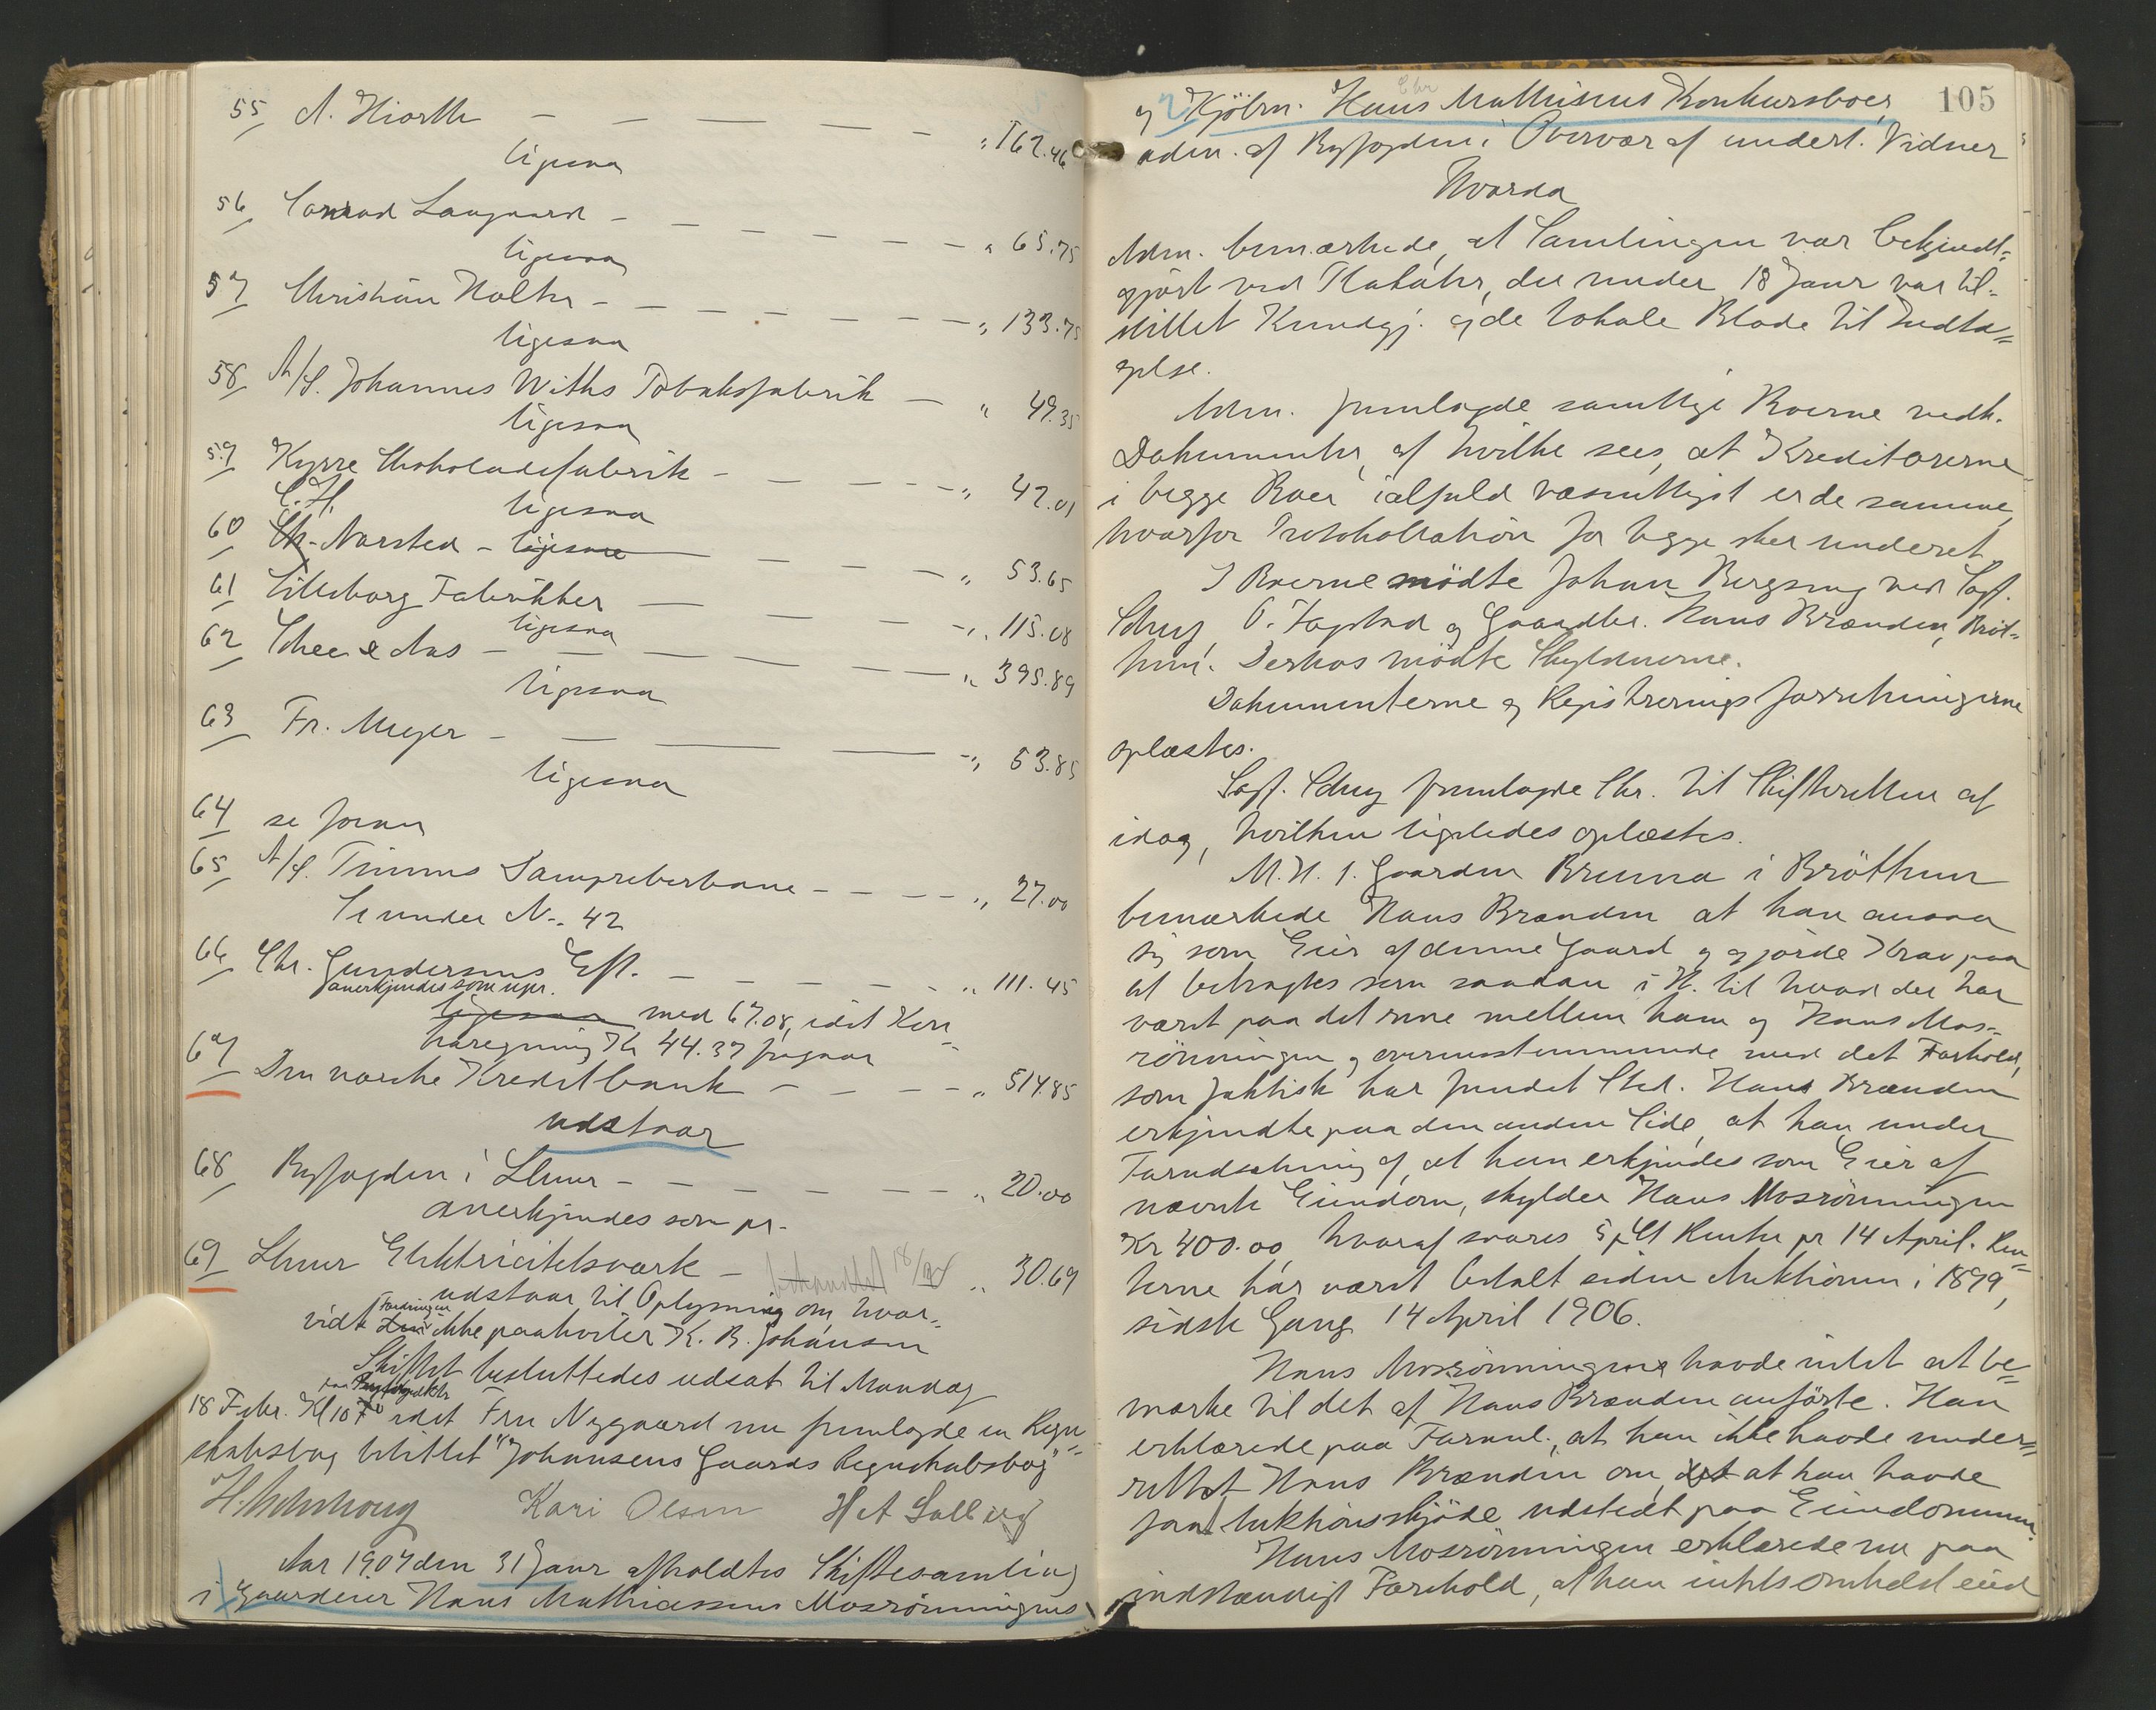 55 A. Hiorth — — — — — „ 162.46
ligesaa
56 Conrad Langaard — — — — — „ 65.75
ligesaa
57 Christian Holter — — — — — „ 133.75
ligesaa
58 A/S. Johannes Withs Tobaksfabrik — „ 49.35
ligesaa
59 Kysre Chokoladefabrik — — — — „ 42.01
ligesaa
C. H.
60 Ch. Narsted — ligesaa — — — „ 53.65
61 Lilleborg Fabrikker — — — — „ 115.08
ligesaa
62 Schee & Aas — — — — — „ 395.89
ligesaa
63 Fr. Meyer — — — — „ 53.85
ligesaa
64 se foran
65 A/S. Dampveberbane — — — „ 27.00
Se under No. 42
66 Chr. Gundersens Eft. — — — — „ 111.45
anerkjendes som upr.
ligesaa med 67.08, idet Kon-
traregning Kr 44.37 fragaar
67 Den norske Kreditbank — — — „ 514.85
udstaar
68 Byfogden i Lhmr — — — — — „ 20.00
anerkjendes som pr.
69 Lhmr Elektricitetsværk — 18/2 „ 30.69
udstaar til Oplysning om, hvor-
Fordringen
vidt den ikke paahviler K. B. Johansen
Skiftet besluttedes udsat til Mandag
paa Byfogdktr
18 Febr. Kl 10 F idet Fru Nygaard nu fremlagde en Regn-
skabsbog betitlet "Johansens Gaards Regnskabsbog"
Kari Olsen H A Solberg
Aar 1907 den 31 Janr afholdtes Skiftesamling
i Gaardeier Hans Mathiassens Mosrönningens
105
Chr
og Kjöbm. Hans Mathisens Konkursboer,
adm. af Byfogden i Overvær af undert. Vidner
Hvorda
Adm. bemærkede, at Samlingen var bekjendt-
gjört ved Plakater, der under 18 Janr var til-
stillet Kundgj. og de lokale Blade til Indta-
gelse.
Adm. fremlagde samtlige Boerne vedk.
Dokumenter, af hvilke sees, at Kreditorerne
i begge Boer ialfald væsentligst er de samme,
hvorfor Protokollation for begge sker underet.
I Boerne mödte Johan Bergseng ved Sagf.
Schug, O. Fagstad og Gaardbr. Hans Brænden, Bröt-
tum. Derhos mödte Skyldnerne.
Dokumenterne og Registreringsforretningerne
oplæstes.
Sagf. Schug fremlagde Skr. til Skifteretten af
idag, hvilken ligeledes oplæstes.
M. H. t. Gaarden Bruna i Bröttum
bemærkede Hans Brænden at han ansaa
sig som Eier af denne Gaard og gjorde Krav paa
at betragtes som saadan i H. til hvad der har
været paa det rene mellem ham og Hans Mos-
rönningen og overensstemmende med det Forhold,
som faktisk har fundet Sted. Hans Brænden
erkjendte paa den anden Side, at han, under
Forudsætning af, at han erkjendes som Eier af
nævnte Eiendom, skylder Hans Mosrönningen
Kr 400.00, hvoraf svares 5 pCt Rente pr 14 April. Ren-
terne har været betalt siden Auktionen i 1899,
sidste Gang 14 April 1906.
Hans Mosrönningen havde intet at be-
mærke til det af Hans Brænden anförte. Han
erklærede paa Foranl., at han ikke havde under-
rettet Hans Brænden om, det at han havde
faat Auktionsskjöde udstedt paa Eiendommen.
Hans Mosrönningen erklærede nu paa
indstændigt Forehold, at han intetsomhelst eied